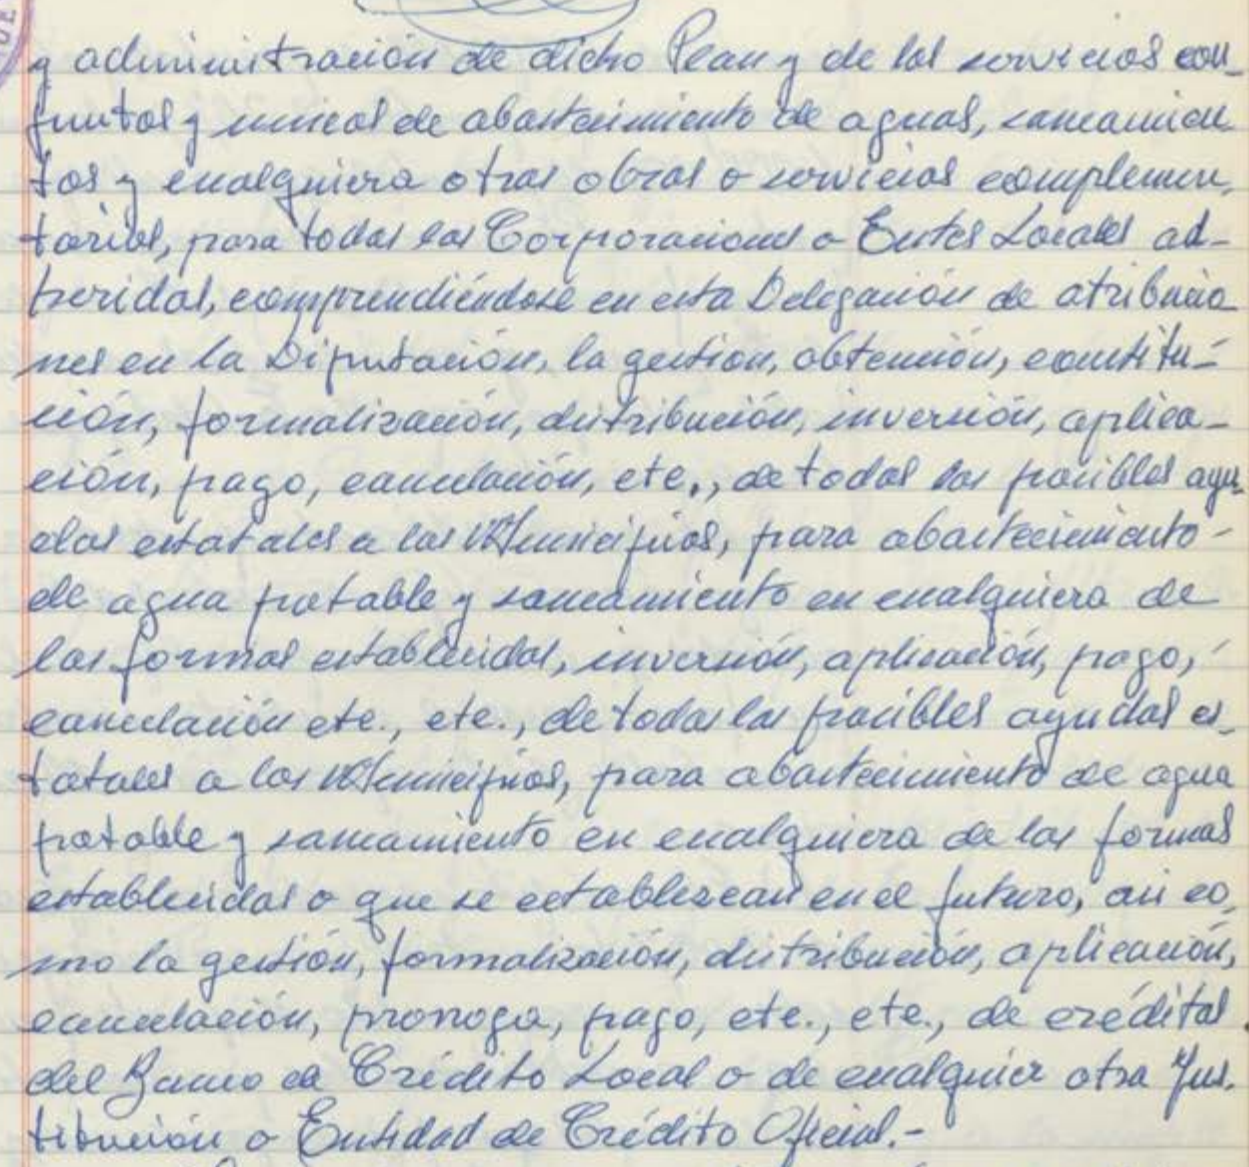 y administración de dicho Plan y de los servicios con-
juntos y únicos de abastecimiento de aguas, saneamien-
tos y cualquiera otras obras o servicios complemen-
tarios, para todas las Corporaciones o Entes Locales ad-
heridas, comprendiéndose en esta Delegación de atribucio
nes en la Diputación, la gestion, obtención, constitu-
ción, formalización, distribución, inversión, aplica-
ción, pago, cancelación, etc., de todas las posibles ayu-
das estatales a los Municipios, para abastecimiento-
de agua potable y saneamiento en cualquiera de
las formas establecidas, inversión, aplicación, pago,
cancelación etc., etc., de todas las posibles ayudas es-
tatales a los Municipios, para abastecimiento de agua
potable y saneamiento en cualquiera de las formas
establecidas o que se establezcan en el futuro, asi co-
mo la gestión, formalización, distribución, aplicación,
cancelación, prorroga, pago, etc., etc., de créditos
del Banco de Crédito Local o de cualquier otra Ins-
titución o Entidad de Crédito Oficial.-